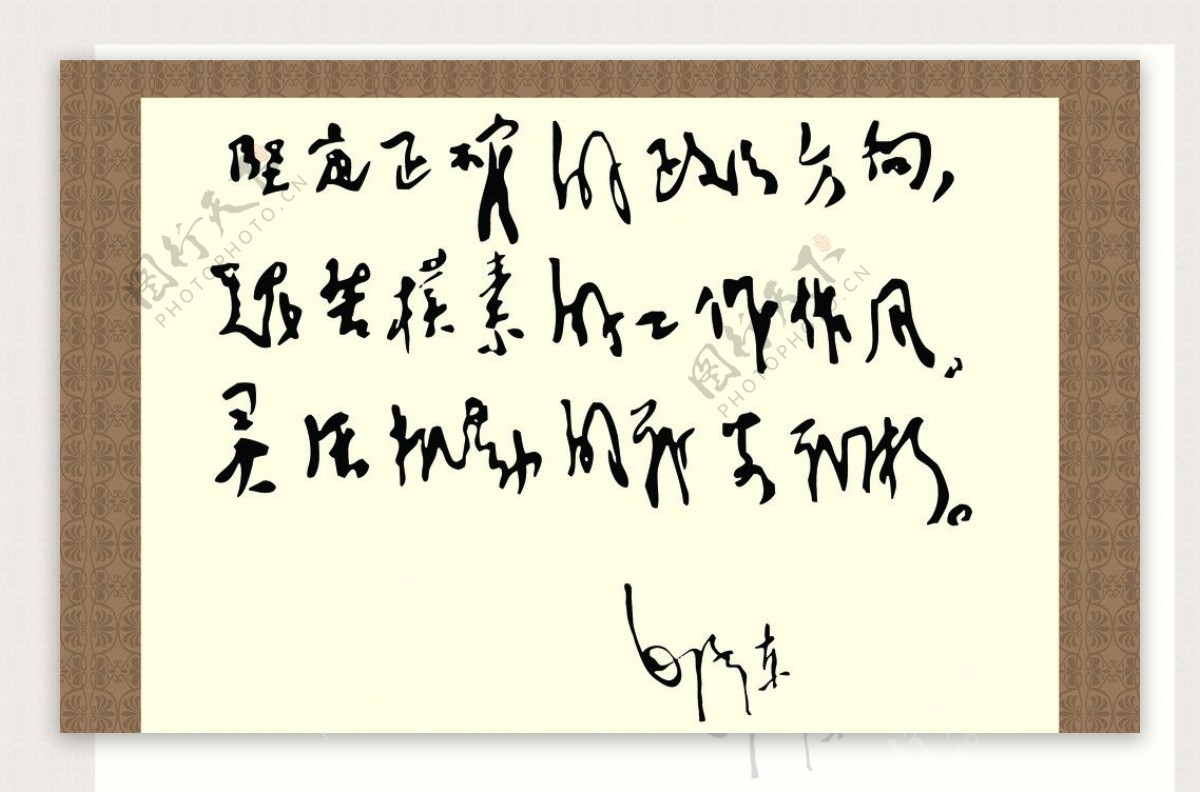 坚定正确的政治方向，
艰苦樸素的工作作风，
灵活机动的战略战术。
毛泽东
图行天下
PHOTOPHOTO.CN
图行天下
PHOTOPHOTO.CN